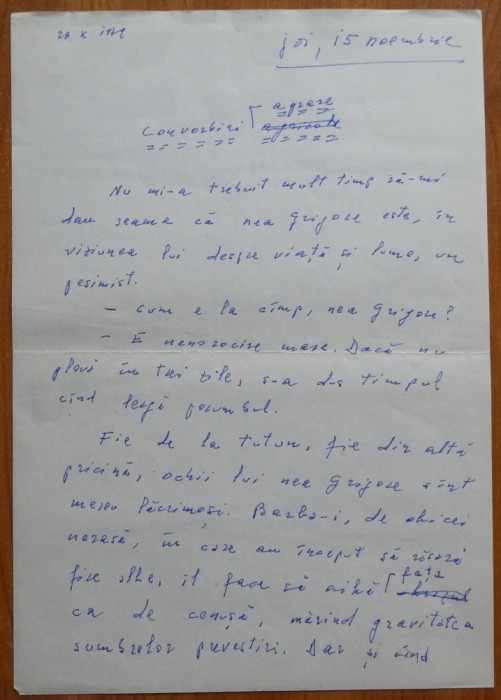 joi, 15 noembrie
Convorbiri agrare
agricole
Nu mi-a trebuit mult timp să-mi
dau seama că nea Grigore este, în
viziunea lui despre viață și lume, un
pesimist.
– Cum e la cîmp, nea Grigore?
– E nenorocire mare. Dacă nu
plouă în trei zile, s-a dus timpul
cînd leagă porumbul.
Fie de la tutun, fie din altă
pricină, ochii lui nea Grigore sînt
mereu lăcrimoși. Barba-i, de obicei
nerasă, în care au început să răsară
fire albe, îl face să aibă fața
obrazul
ca de cenușă, mărind gravitatea
sumbrelor prevestiri. Dar și cînd